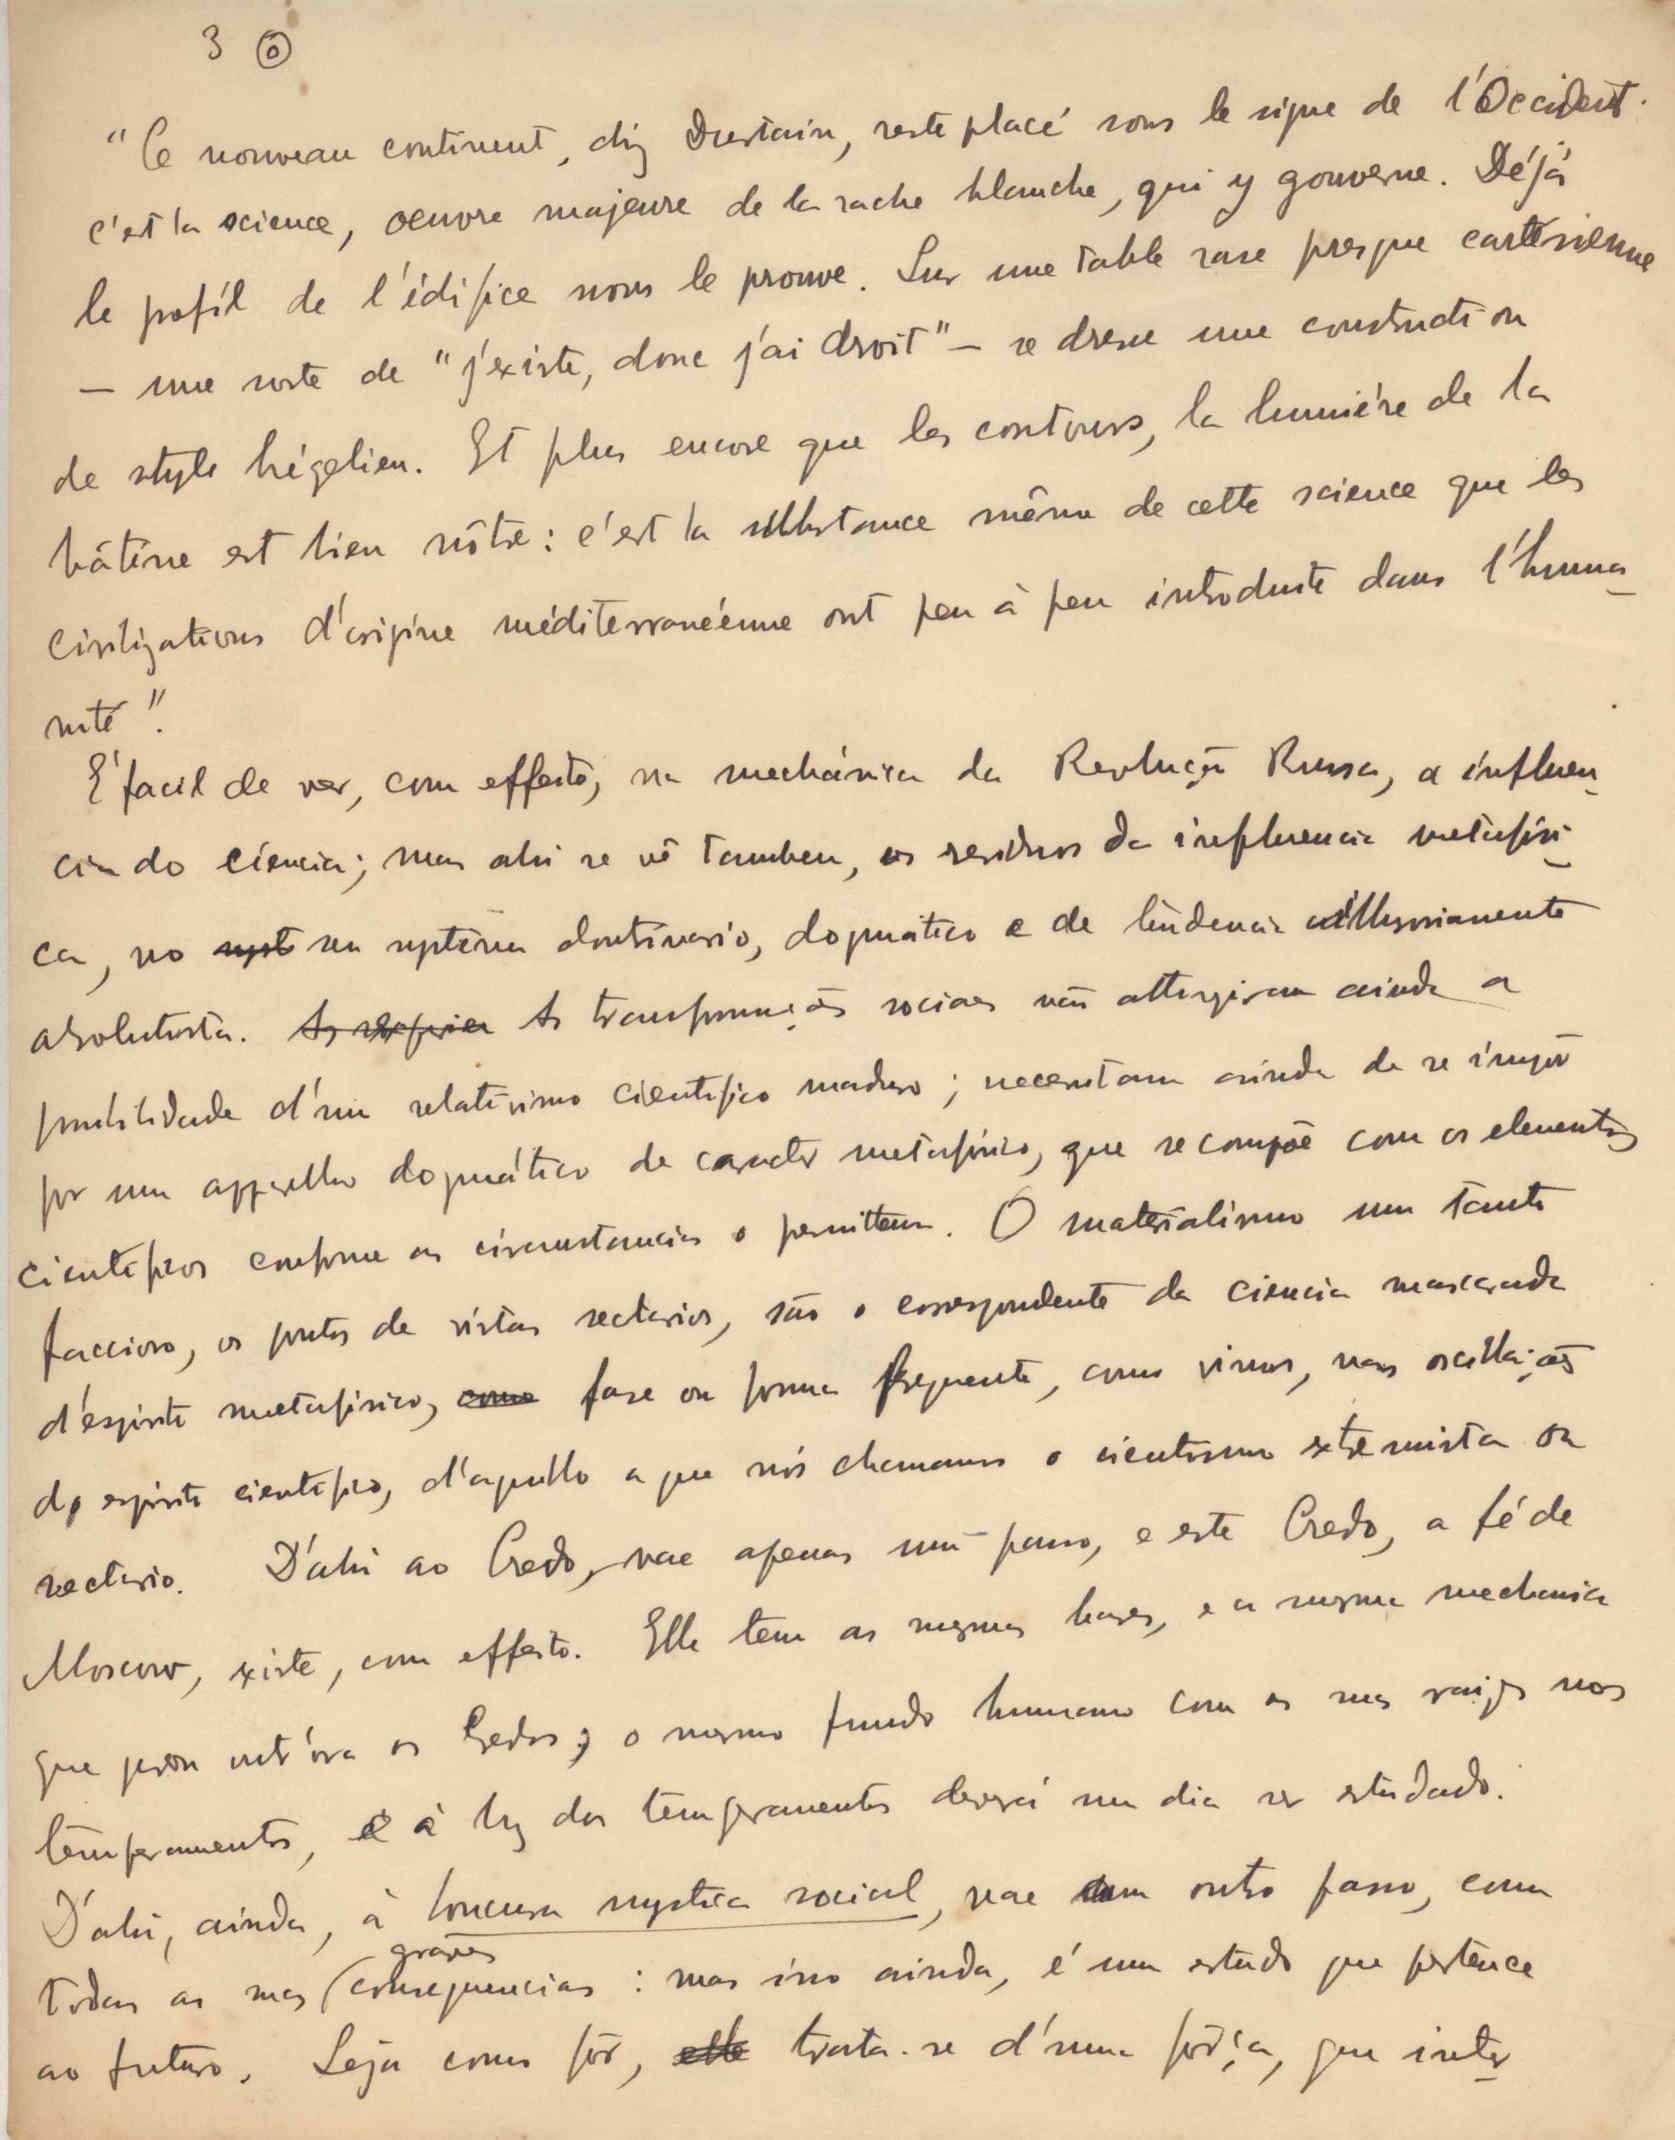 3 (6)
"Ce nouveau continent, diz Durtain, reste placé sous le signe de l'Occident.
c'est la science, oeuvre majeure de la rache blanche, qui y gouverne. Déjá
le profil de l'édifice nous le prouve. Sur une table rase presque cartésienne
— une sorte de "j'existe, donc j'ai droit" — se dresse une construction
de style hégelien. Et plus encore que les contours, la lumiére de la
bâtisse est bien nôtre: c'est la substance même de cette science que les
civilizations d'origine méditerranéenne ont peu à peu introduite dans l'huma-
nité".
É facil de ver, com effeito, na mechánica da Revolução Russa, a influen-
cia do ciencia; mas ahi se vê tambem, os residuos da influencia metafisi-
ca, no syst seu systema doutrinario, dogmático e de tendencia illusoriamente
absolutista. As As transformações sociaes não attingiram ainda a
possibilidade d'um relativismo cientifico maduro; necessitam ainda de se impôr
por um apparelho dogmático de caracter metafisico, que se compõe com os elementos
cientificos conforme as circumstancias o permittem. O materialismo um tanto
faccioso, os pontos de vistas sectarios, são o correspondente da ciencia mascarada
d'espirito metafisico, como fase ou forma frequente, como vimos, nas oscillações
do espirito cientifico, d'aquillo a que nós chamamos o cientismo extremista ou
sectario. D'ahi ao Credo, vae apenas um passo, e este Credo, a fé de
Moscow, existe, com effeito. Elle tem as mesmas bases, e a mesma mechanica
que gerou outr'ora os Credos; o mesmo fundo humano com as suas raizes nos
temperamentos, e á luz dos temperamentos deverá um dia ser estudado.
D'ahi, ainda, á loucura mystica social, vae um outro passo, com
todas as suas (graves
consequencias: mas isso ainda, é um estudo que pertence
ao futuro. Seja como fôr, elle trata-se d'uma fôrça, que inter-